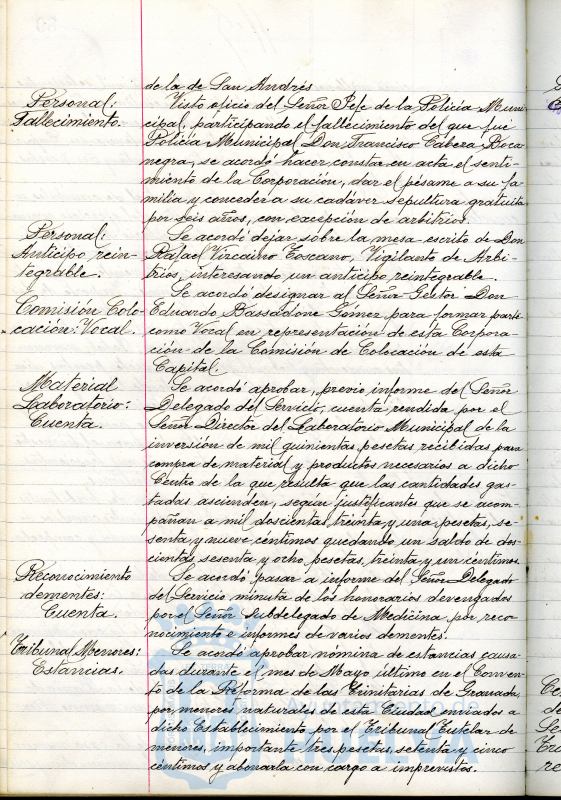 de la de San Andrés
Personal: Visto oficio del Señor Jefe de la Policia Muni-
Fallecimiento. cipal, participando el fallecimiento del que fué
Policía Municipal Don Francisco Cabera Boca
negra, se acordó hacer constar en acta el senti-
miento de la Corporación, dar el pésame a su fa-
milia y conceder a su cadáver sepultura gratuita
por seis años, con excepción de arbitrios.
Personal: Se acordó dejar sobre la mesa escrito de Don
Anticipo rein- Rafael Vizcaino Toscano, Vigilante de Arbi-
tegrable. trios, interesando un anticipo reintegrable.
Se acordó designar al Señor Gestor Don
Comisión Colo- Eduardo Bassadone Gómez para formar parte
cación: Vocal. como Vocal en representación de esta Corpora-
ción de la Comisión de Colocación de esta
Capital.
Material Se acordó aprobar, previo informe del Señor
Laboratorio: Delegado del Servicio, cuenta rendida por el
Cuenta. Señor Director del Laboratorio Municipal de la
inversión de mil quinientas pesetas recibidas para
compra de material y productos necesarios a dicho
Centro de la que resulta que las cantidades gas-
tadas ascienden, según justificantes que se acom-
pañan a mil doscientas treinta y una pesetas, se-
senta y nueve céntimos quedando un saldo de dos-
cientas sesenta y ocho pesetas, treinta y un céntimos.
Reconocimiento Se acordó pasar a informe del Señor Delegado
dementes: del Servicio minuta de los honorarios devengados
Cuenta. por el Señor Subdelegado de Medicina, por reco-
nocimiento e informes de varios dementes.
Tribunal Menores: Se acordó aprobar nómina de estancias causa-
Estancias. das durante el mes de Mayo último en el Conven-
to de la Reforma de las Trinitarias de Granada
por menores naturales de esta Ciudad enviados a
dicho Establecimiento por el Tribunal Tutelar de
menores, importante tres pesetas, setenta y cinco
céntimos y abonarla con cargo a imprevistos.